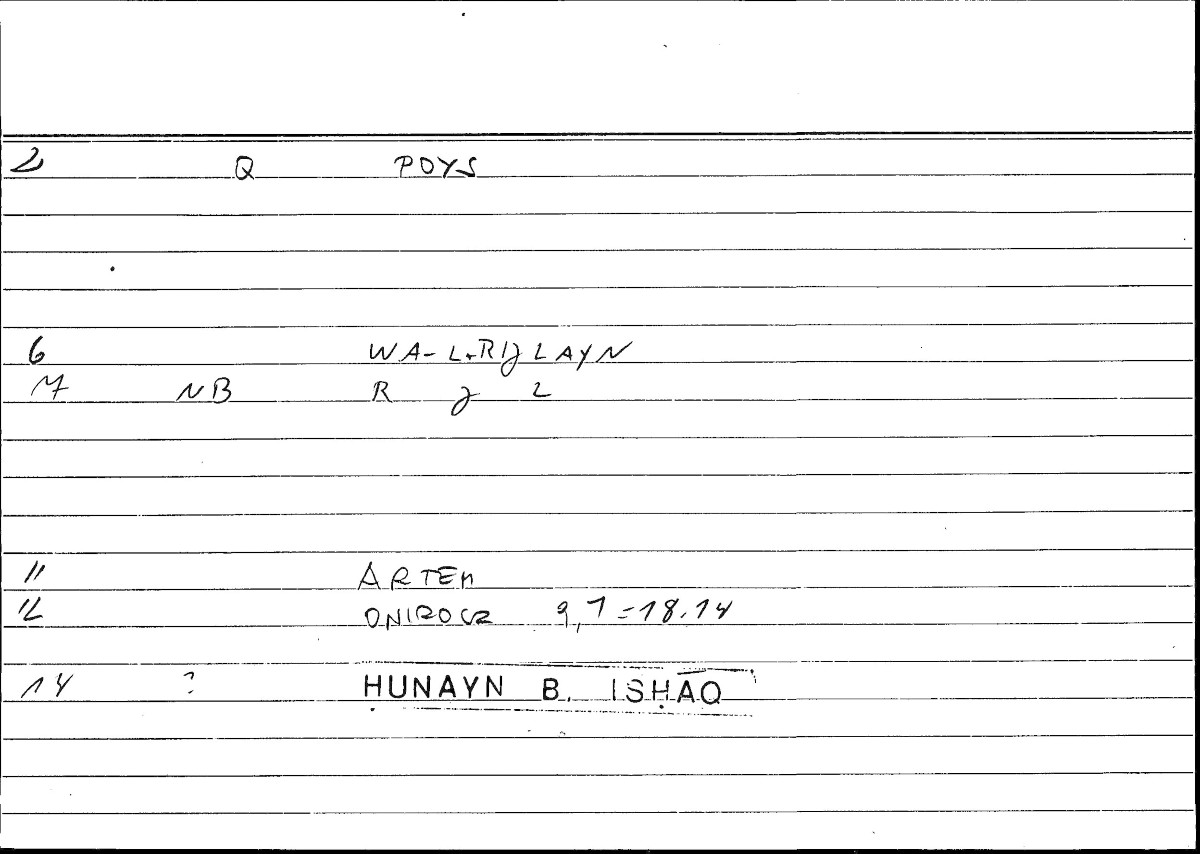 2 Q POYS
6 WA-L-RIJLAYN
M NB R J L
11 ARTEM
12 ONIROCR 9,1=18.14
14 ? ḤUNAYN B. ISḤĀQ